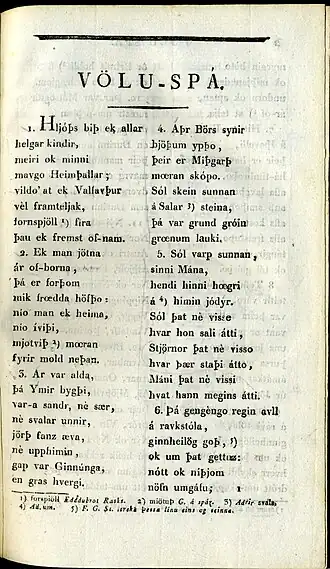 VÖLU-SPÁ.
1. Hljóþs biþ ek allar
helgar kindir,
meiri ok minni
mavgo Heimþallar;
vildo' at ek Valfavþur
vèl framteljak,
fornspjöll ¹) fira
þau ek fremst of-nam.
2. Ek man jötna
ár of-borna,
þá er forþom
mik frœdda höfþo:
nio man ek heima,
nio íviþi,
mjotviþ ²) mœran
fyrir mold neþan.
3. Ár var alda,
þá Ymir bygþi,
var-a sandr, nè sær,
nè svalar unnir,
jörþ fanz æva,
nè upphimin,
gap var Ginnúnga,
en gras hvergi.
4. Aþr Börs synir
bjöþum ypþo,
þeir er Miþgarþ
mœran skópo.
Sól skein sunnan
á Salar ³) steina,
þá var grund gróin
grœnum lauki.
5. Sól varp sunnan,
sinni Mána,
hendi hinni hœgri
á ⁴) himin jódýr.
Sól þat nè visse
hvar hon sali átti,
Stjörnor þat nè visso
hvar þær staþi átto,
Máni þat nè vissi
hvat hann megins átti.
6. Þá gengèngo regin avll
á ravkstóla,
ginnheilög goþ, ⁵)
ok um þat gettuz:
nótt ok niþjom
nöfn umgáfu;
1
1) forspjöll, Eddubrot Rasks. 2) miötuþ C. á spáz. 3) Adrir svala.
4) Ad. um. 5) F. G. St. isrekk þessa línu eins og seinna.